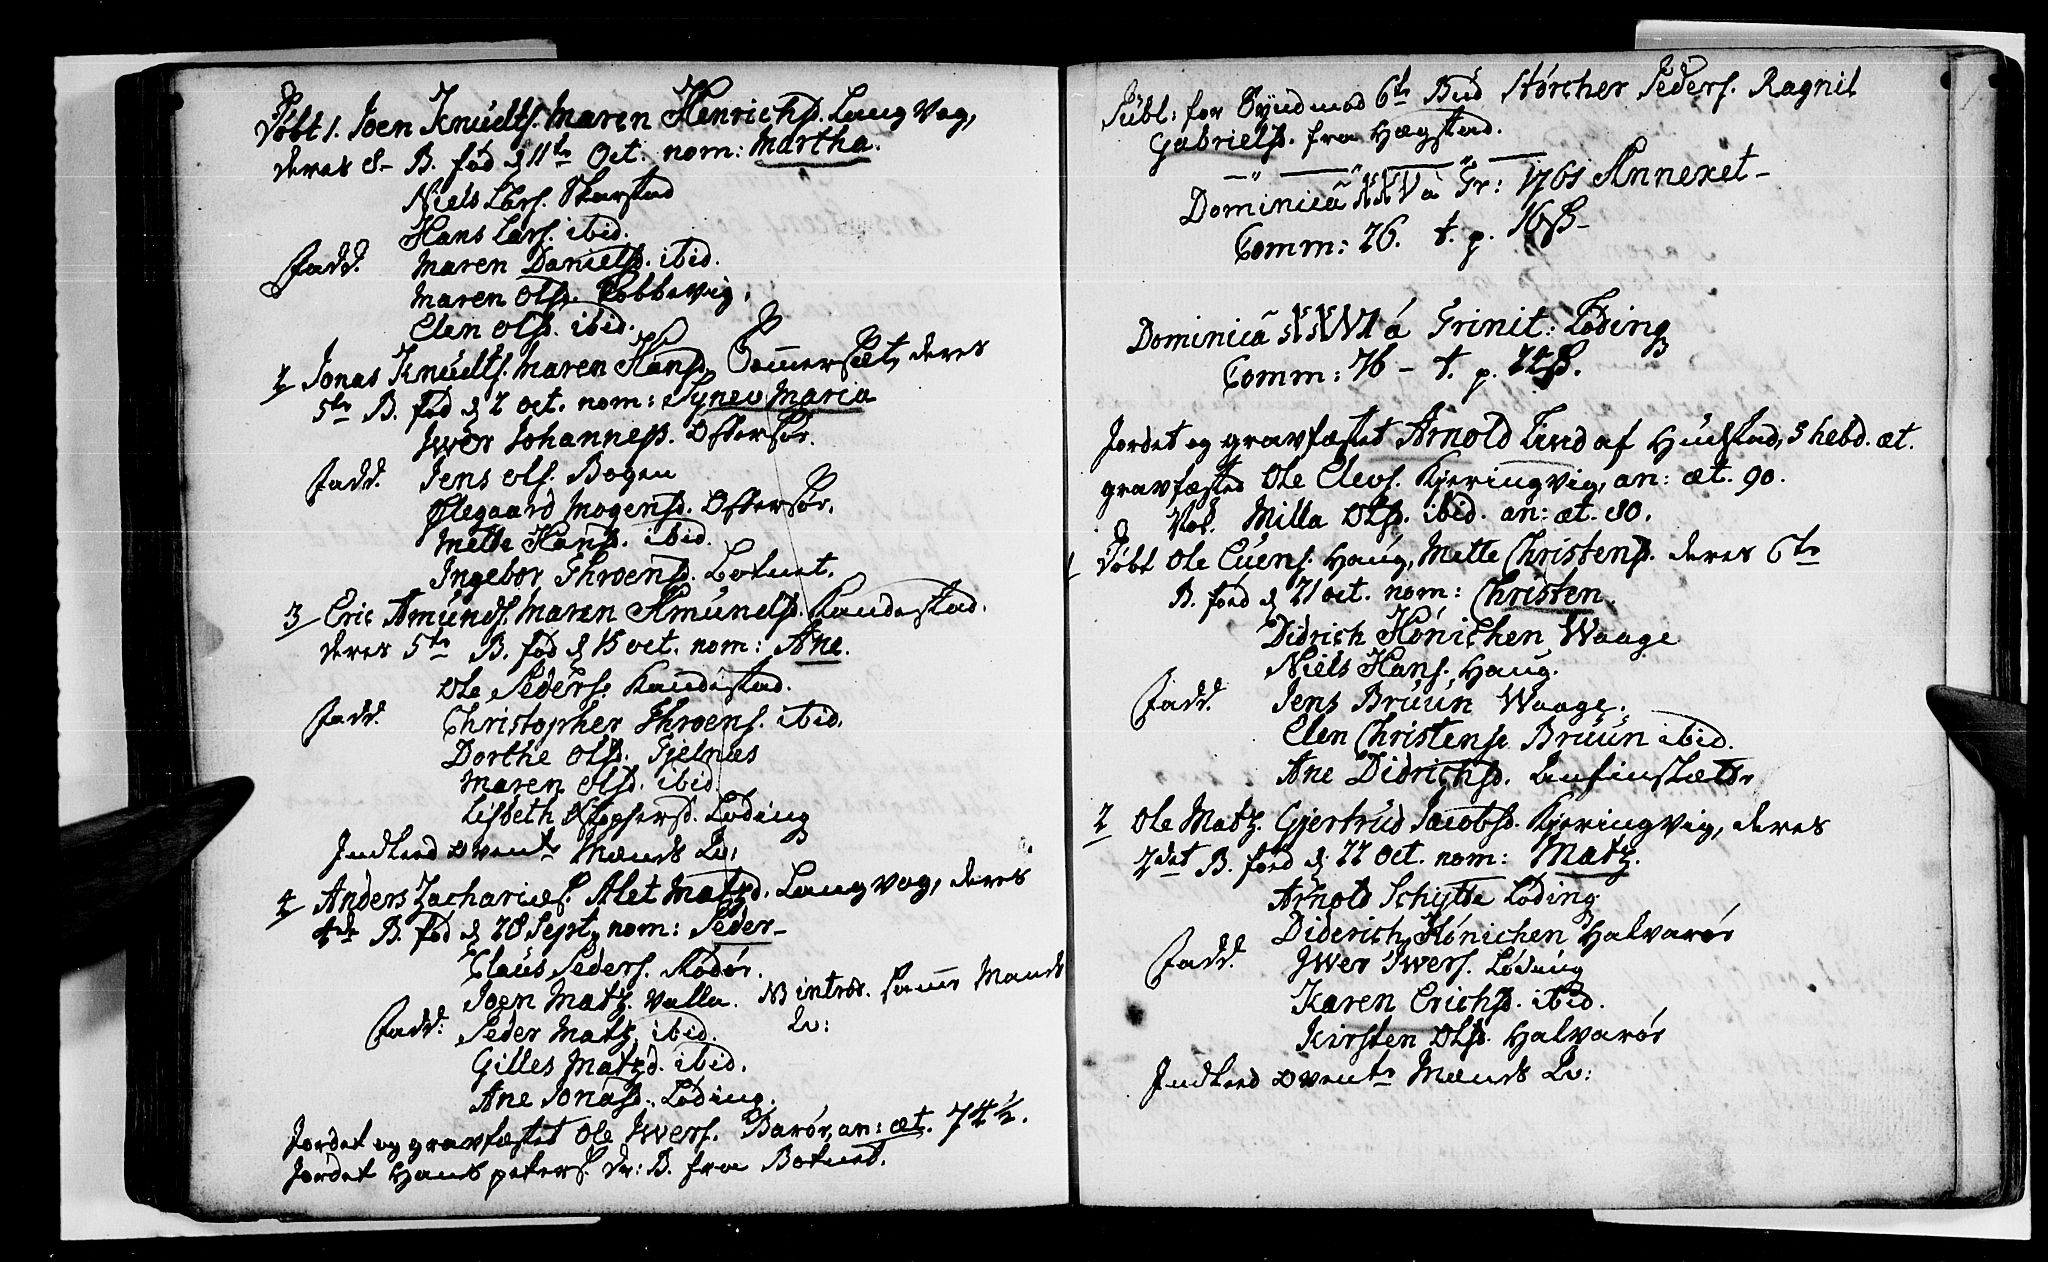 Døbt 1. Joen Knudts. Maren Henrichsd. Langvog,
deres 8- B. fød d. 11te Oct. nom: Martha.
Niels Lars. Skarstad
Hans Lars. ibid.
Fadd. Maren Danielsd. ibid.
Maren Olsd. Robbevig,
Elen Olsd. ibid.
2 Jonas Knudts. Maren Hansd. Sommersæt, deres
5te B. fød d. 2 Oct. nom: Synev Maria
Jwer Johanness. Offersør.
Fadd. Jens Ols. Bogen
Ølegaard Mogensd. Offersør.
Mette Hansd. ibid.
Ingebor Throensd. Botnet.
3 Eric Amunds. Maren Amundsd. Kandestad.
deres 5te B. fød d. 15 oct. nom: Ane.
Ole Peders. Kandestad.
Fadd. Christopher Throens. ibid.
Dorthe Olsd. Fjelnæs
Maren Olsd. ibid.
Lisbeth Xstophersd. Løding
Indleed ovente Mænds Qv:
4 Anders Zacharies. Alet Matzd. Langvog, deres
4de B. fød d. 28 Sept. nom: Peder-
Claus Peders. Rødør.
Joen Matz. Valla. NB introd. samme Mands
Fadd: Peder Matz. ibid. Qv:
Gilles Matzd. ibid.
Ane Jonasd. Løding.
Jordet og gravfæstet Ole Jwers. Barør, an: æt. 74 1/2.
Jordet Hans peters. Dr: B. fra Botnet.
Publ: for Synd mod 6te Bud Størcher Peders. Ragnil
Gabrielsd. fra Hægstad.
Dominicâ XXV à Tr: 1761 Annexet-
Comm: 26. t. p. 16ß-
Dominicâ XXVI à Trinit: Løding
Comm: 76 - t. p. 22ß.
Jordet og gravfæstet Arnold Lind af Hustad, 3 hebd. æt.
gravfæsted Ole Elevs. Kjeringvig, an: æt. 90.
Milla Olsd. ibid. an: æt. 80.
1 Døbt Ole Evens. Haug, Mette Christensd. deres 6te
B. fød d. 21 oct. nom: Christen.
Didrich Hønichen Waage
Niels Hans. Haug.
Fadd. Jens Bruun Waage.
Elen Christense Bruun ibid.
Ane Didrichsd.
2 Ole Matz. Gjertrud Jacobsd. Kjeringvig, deres
2det B. fød d. 22 Oct. nom: Matz.
Arnold Schytte Løding
Diderich Hønichen Halvarør
Fadd. Jwer Jwers. Løding
Karen Erichsd. ibid.
Kirsten Olsd. Halvarør
Indleed ovente Mænds Qv: